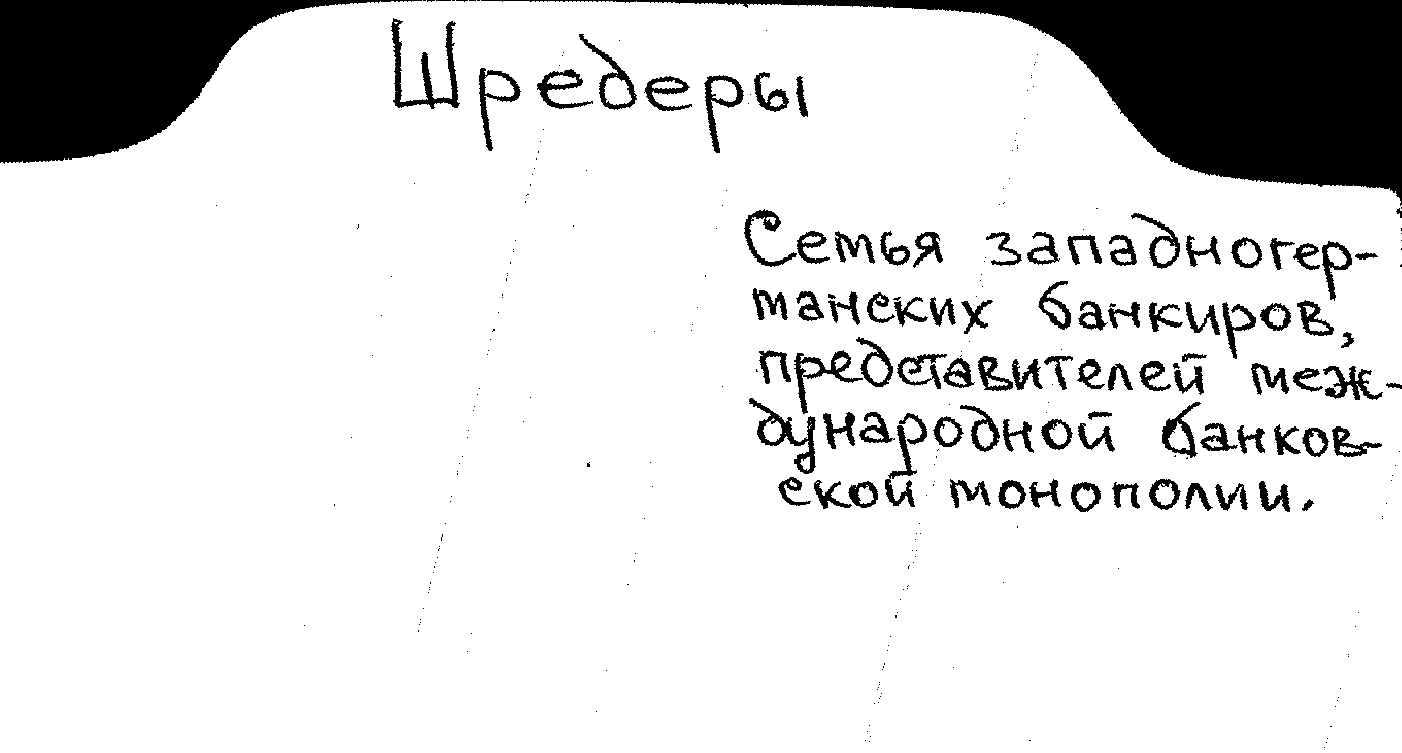 Шредеры
Семья западногер-
манских банкиров,
представителей меж-
дународной банков-
ской монополии.